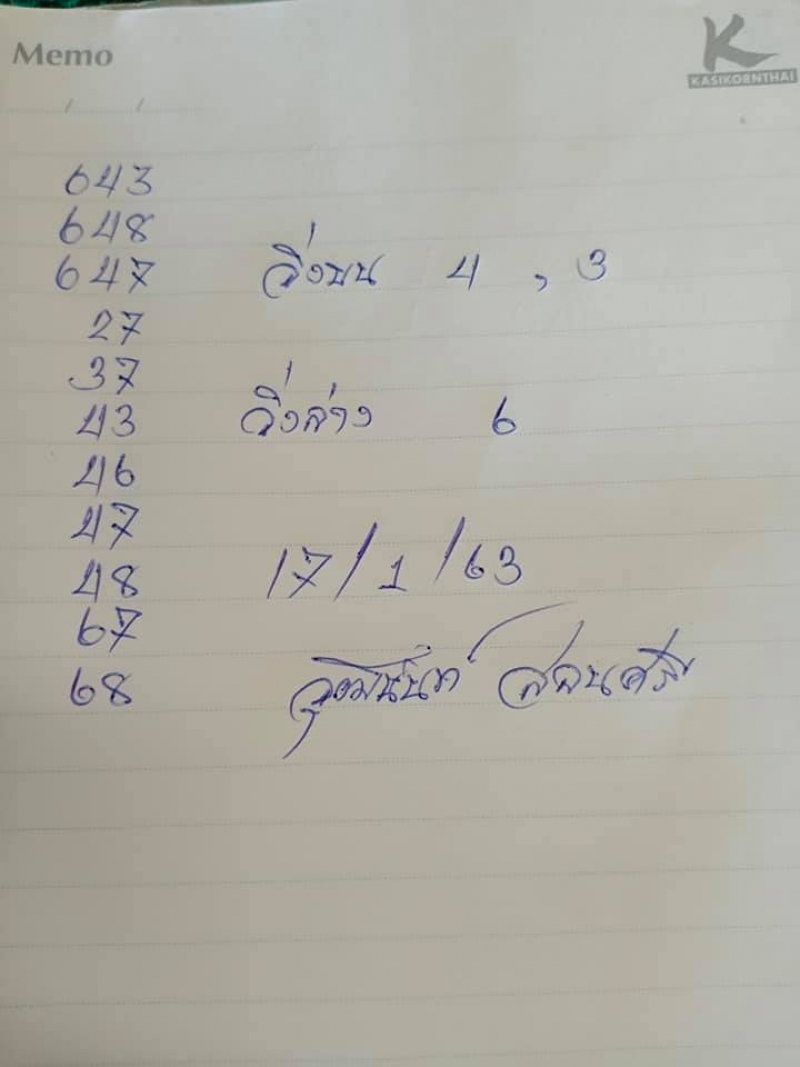 Memo
KASIKORNTHAI
/ /
643
648
647 วิ่งบน 4 , 3
27
37
43 วิ่งล่าง 6
46
47
48 17/1/63
67
68